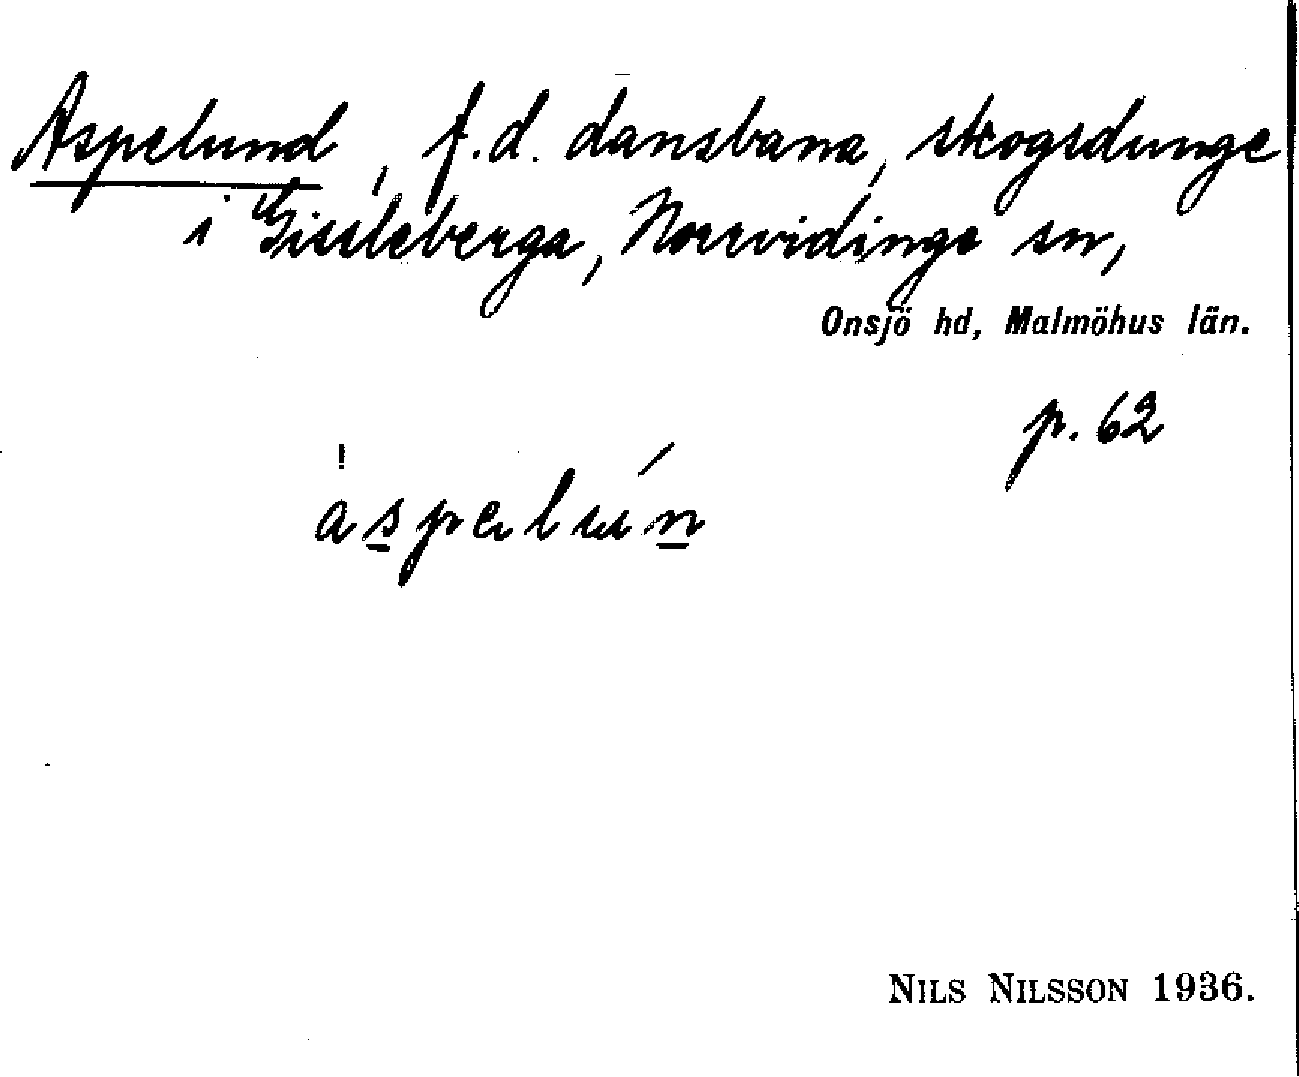 Aspelund, f.d. dansbana, skogsdunge
i Gissleberga, Norrvidinge sn,
Onsjö hd, Malmöhus län.
p. 62
aspelún
NILS NILSSON 1936.